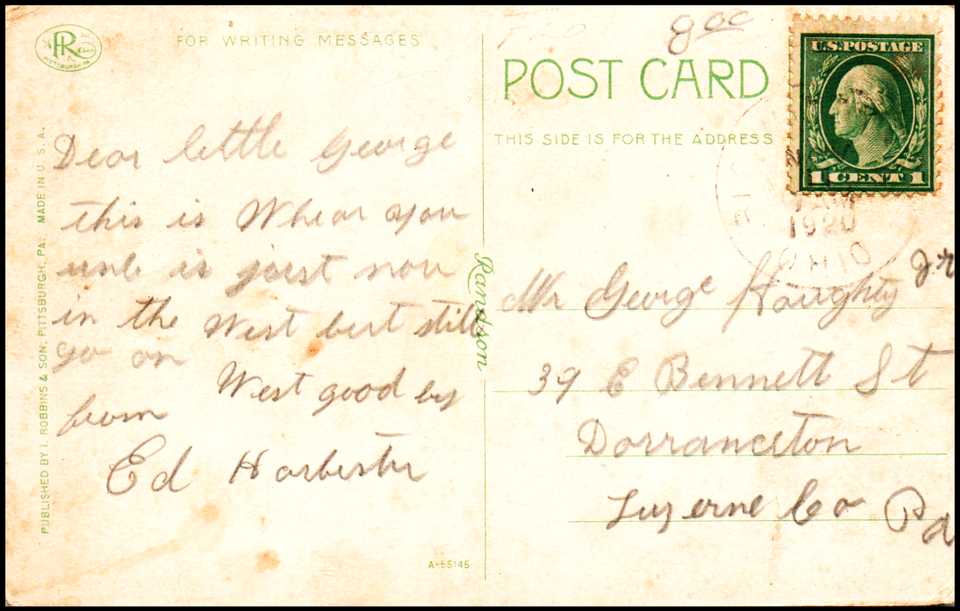 PR
PITTSBURGH, PA.
FOR WRITING MESSAGES
PUBLISHED BY I. ROBBINS & SON, PITTSBURGH, PA. MADE IN U.S.A.
Dear little George
this is Whear you
is joest now
in the West but still
go on West good by
from
Ed Harbester
A-55145
Randson
goc
POST CARD
THIS SIDE IS FOR THE ADDRESS
U.S. POSTAGE
1 CENT 1
1920
OHIO
Mr George Haughty Jr
39 E Bennett St
Dorranceton
Luzerne Co Pa